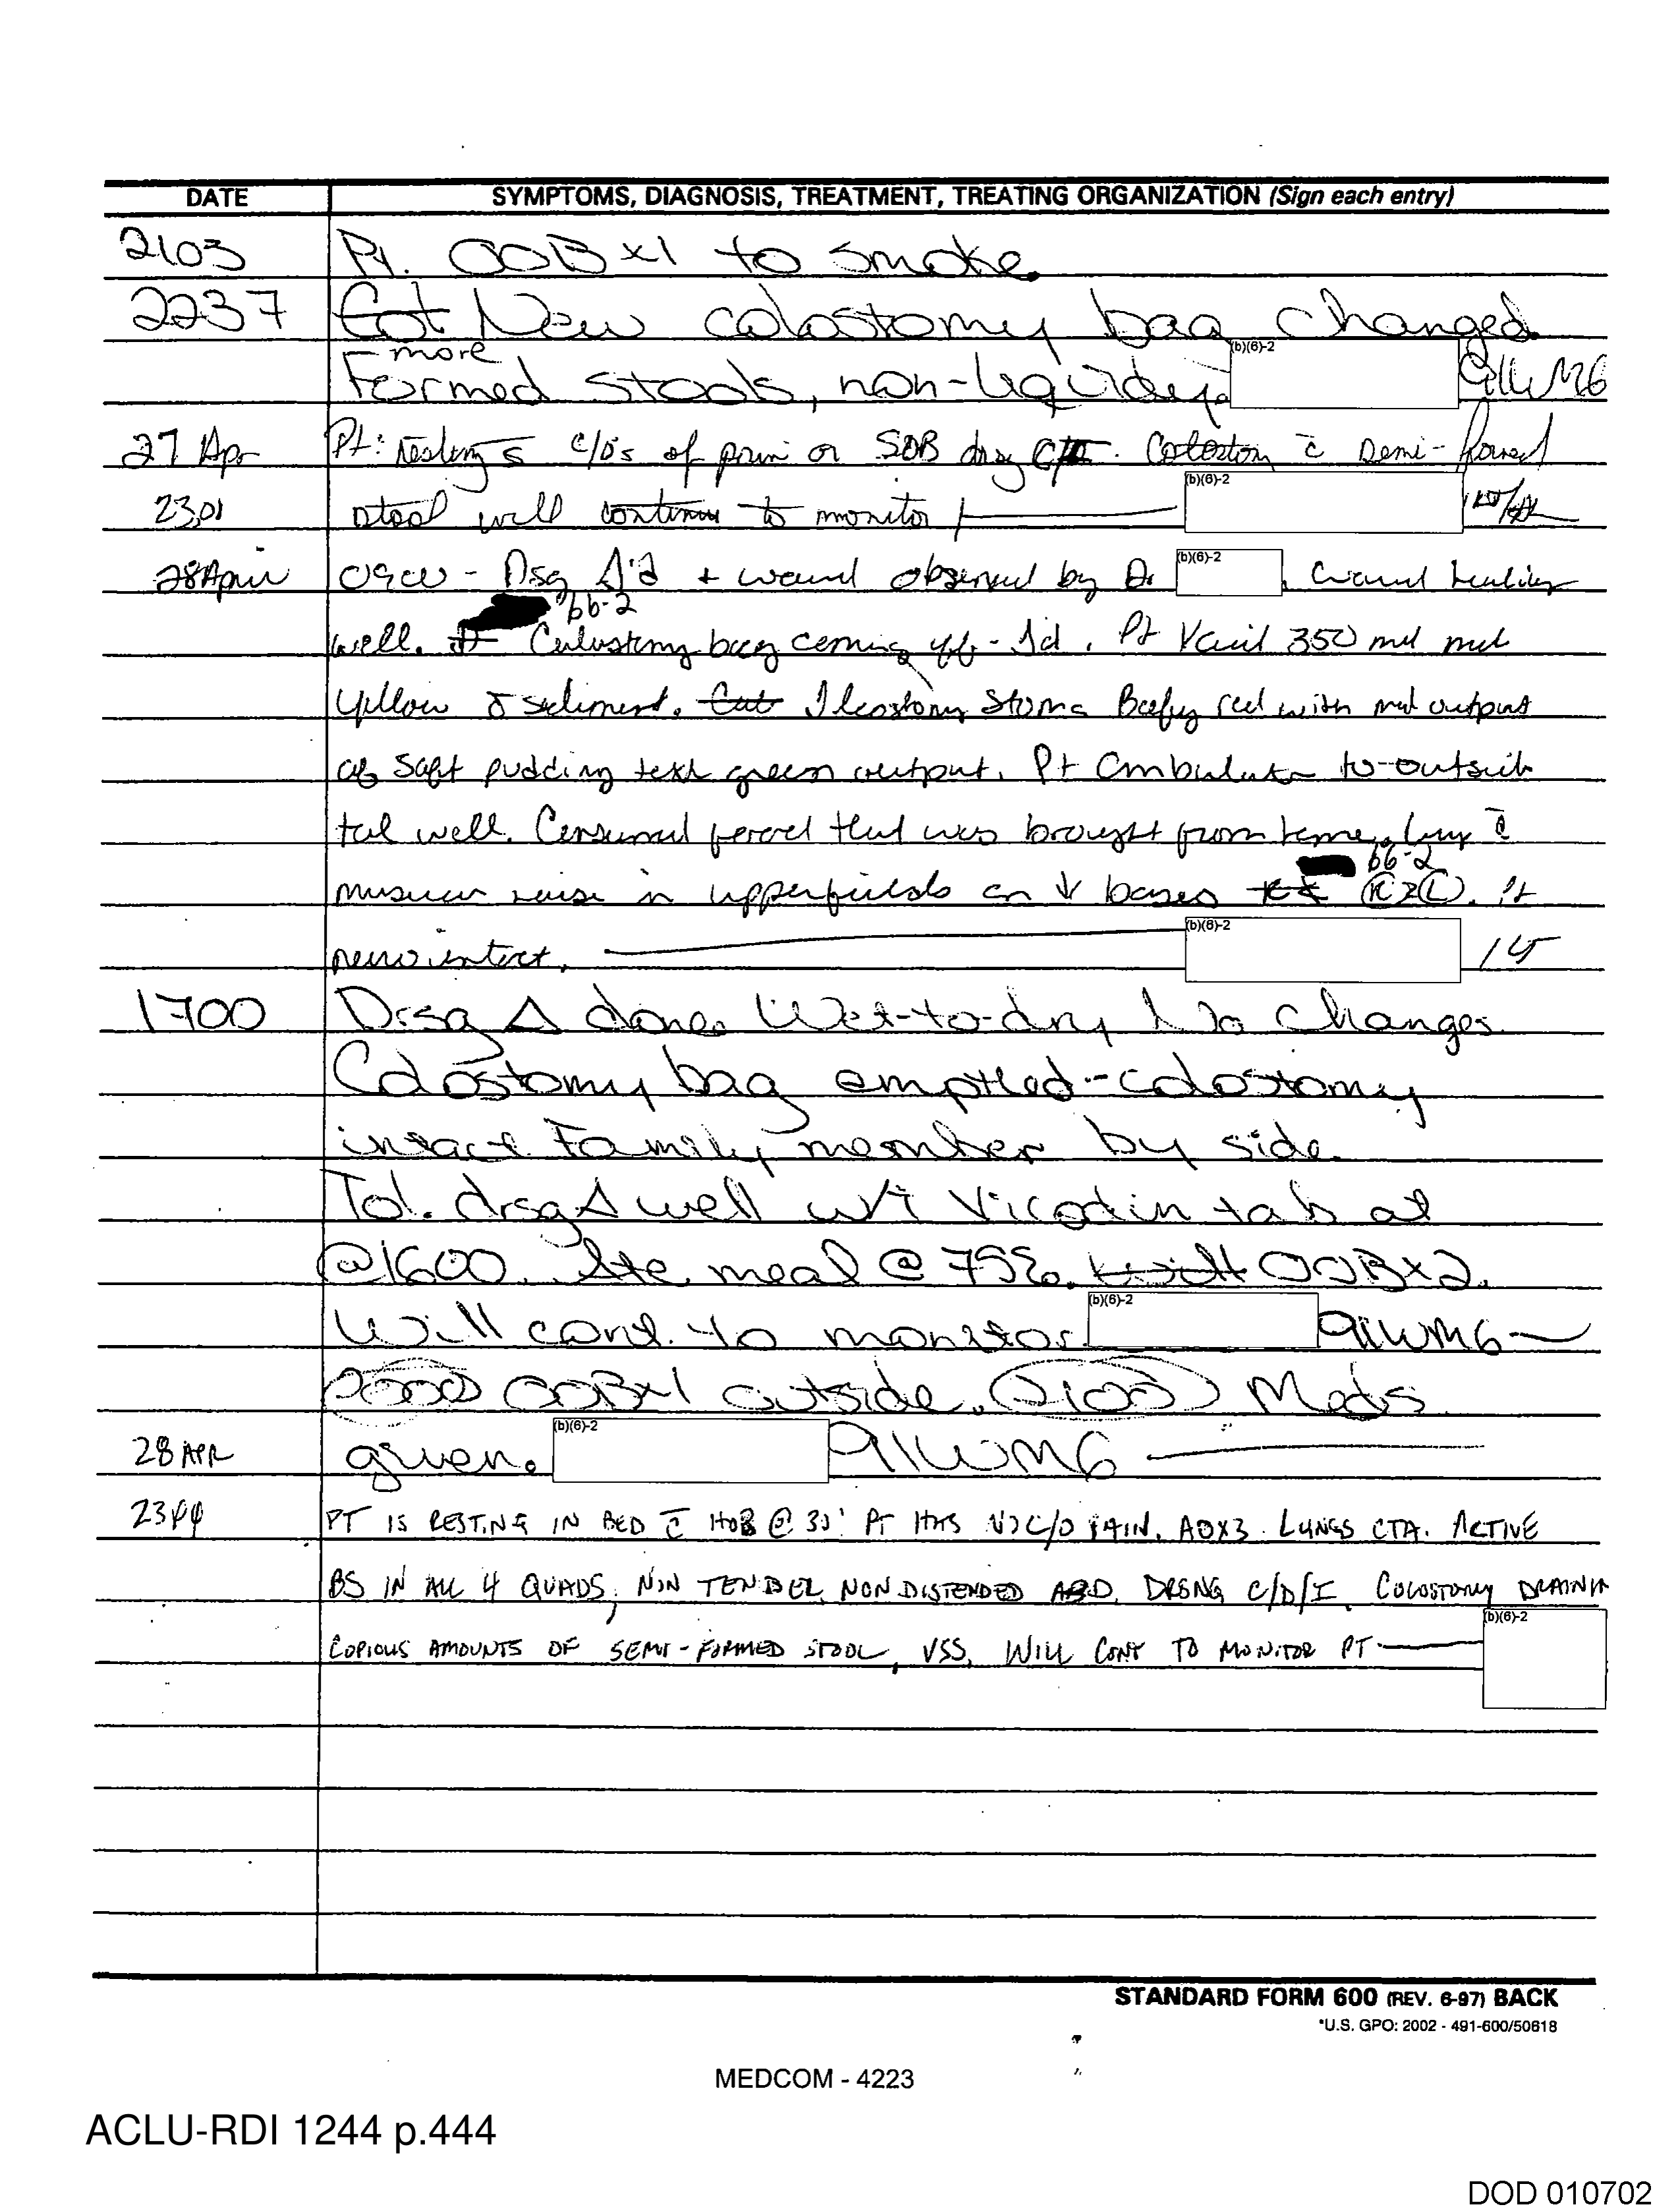 DATE SYMPTOMS, DIAGNOSIS, TREATMENT, TREATING ORGANIZATION (Sign each entry)
2103 Pt. OOB x1 to smoke.
2237 Got New colostomy bag changed.
more
Formed stools, non-liquidy. (b)(6)-2 91WM6
27 Apr Pt: resting s̄ c/o's of pain or SOB drsg C/D/I. c̄ Semi-formed
2301 stool will continue to monitor (b)(6)-2
28 April 0900 - Dsg Δ'd + wound observed by Dr (b)(6)-2 . Wound healing
b6-2
well. Colostomy bag coming off - Δ'd. Pt Void 350 mod
yellow s̄ sediment. Ileostomy Stoma Beefy red with output
of soft pudding text green output. Pt ambulates to outside
tol well. Consumed food that was brought from home. c̄
b6-2
in upperfields ↓ bases (R) > (L). Pt
neuro intact. (b)(6)-2
1700 Drsg Δ done. Wet-to-dry No changes.
Colostomy bag emptied - colostomy
intact Family member by side.
Tol. drsg Δ well w/ ī Vicodin tab at
@1600. Ate meal @ 75%. OOB x2.
Will cont. to monitor (b)(6)-2 91WM6
2000 OOB x1 outside. 2100 Meds
28 APR given. (b)(6)-2 91WM6
2344 PT IS RESTING IN BED c̄ HOB @ 30° PT HAS NO C/O PAIN. AOX3. LUNGS CTA. ACTIVE
BS IN ALL 4 QUADS, NON TENDER, NON DISTENDED ABD. DRSNG C/D/I. COLOSTOMY DRAININ
COPIOUS AMOUNTS OF SEMI-FORMED STOOL, VSS, WILL CONT TO MONITOR PT (b)(6)-2
STANDARD FORM 600 (REV. 6-97) BACK
*U.S. GPO: 2002 - 491-600/50618
MEDCOM - 4223
ACLU-RDI 1244 p.444
DOD 010702